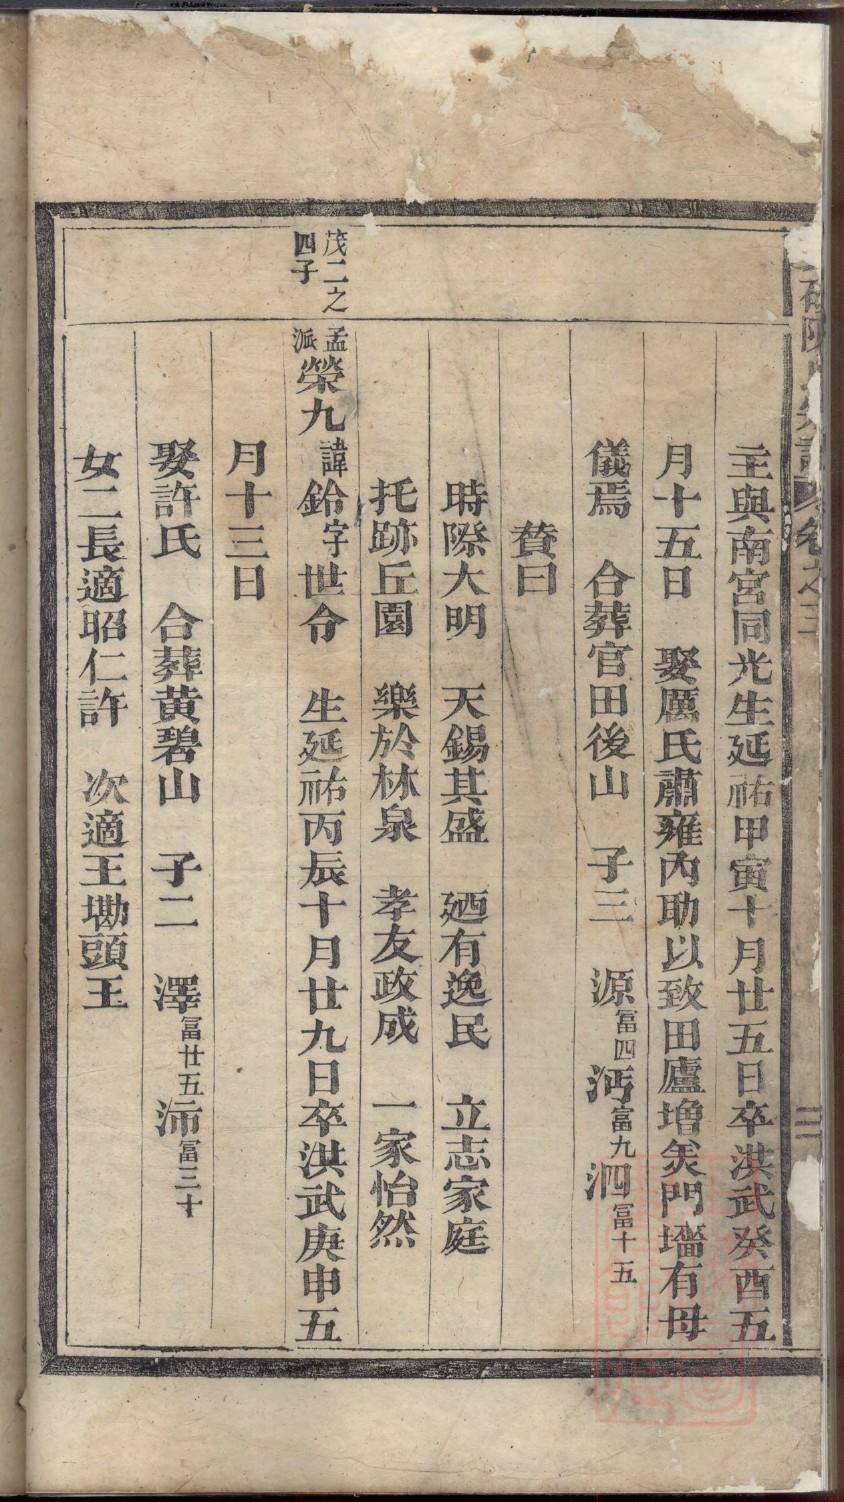 主與南宮同光生延祐甲寅十月廿五日卒洪武癸酉五
月十五日　娶厲氏肅雍內助以致田廬增羙門墻有母
儀焉　合葬官田後山　子三　源富四沔富九泗富十五
贊曰
時際大明　天錫其盛　廼有逸民　立志家庭
托跡丘園　樂於林泉　孝友政成　一家怡然
茂二之四子
孟派榮九諱鈴字世令　生延祐丙辰十月廿九日卒洪武庚申五
月十三日
娶許氏　合葬黄碧山　子二　澤富廿五沛富三十
女二長適昭仁許　次適王墈頭王